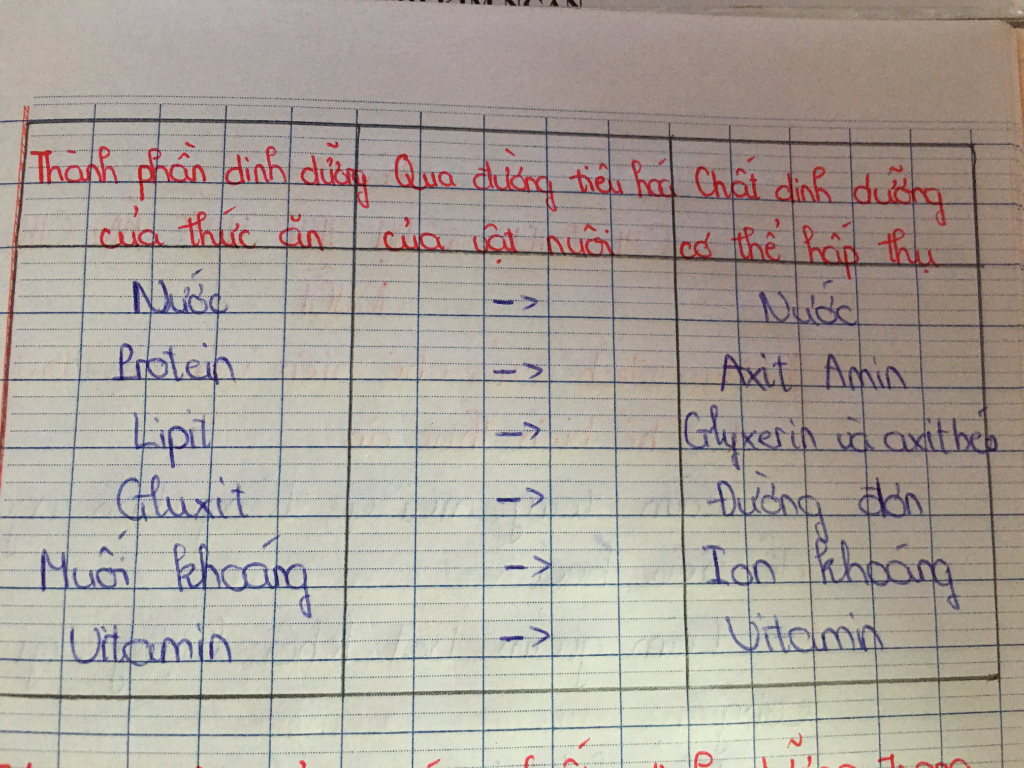 Thành phần dinh dưỡng Qua đường tiêu hoá Chất dinh dưỡng
của thức ăn của vật nuôi có thể hấp thụ
Nước -> Nước
Protein -> Axit Amin
Lipit -> Glyxerin và axit béo
Gluxit -> Đường đơn
Muối khoáng -> Ion khoáng
Vitamin -> Vitamin